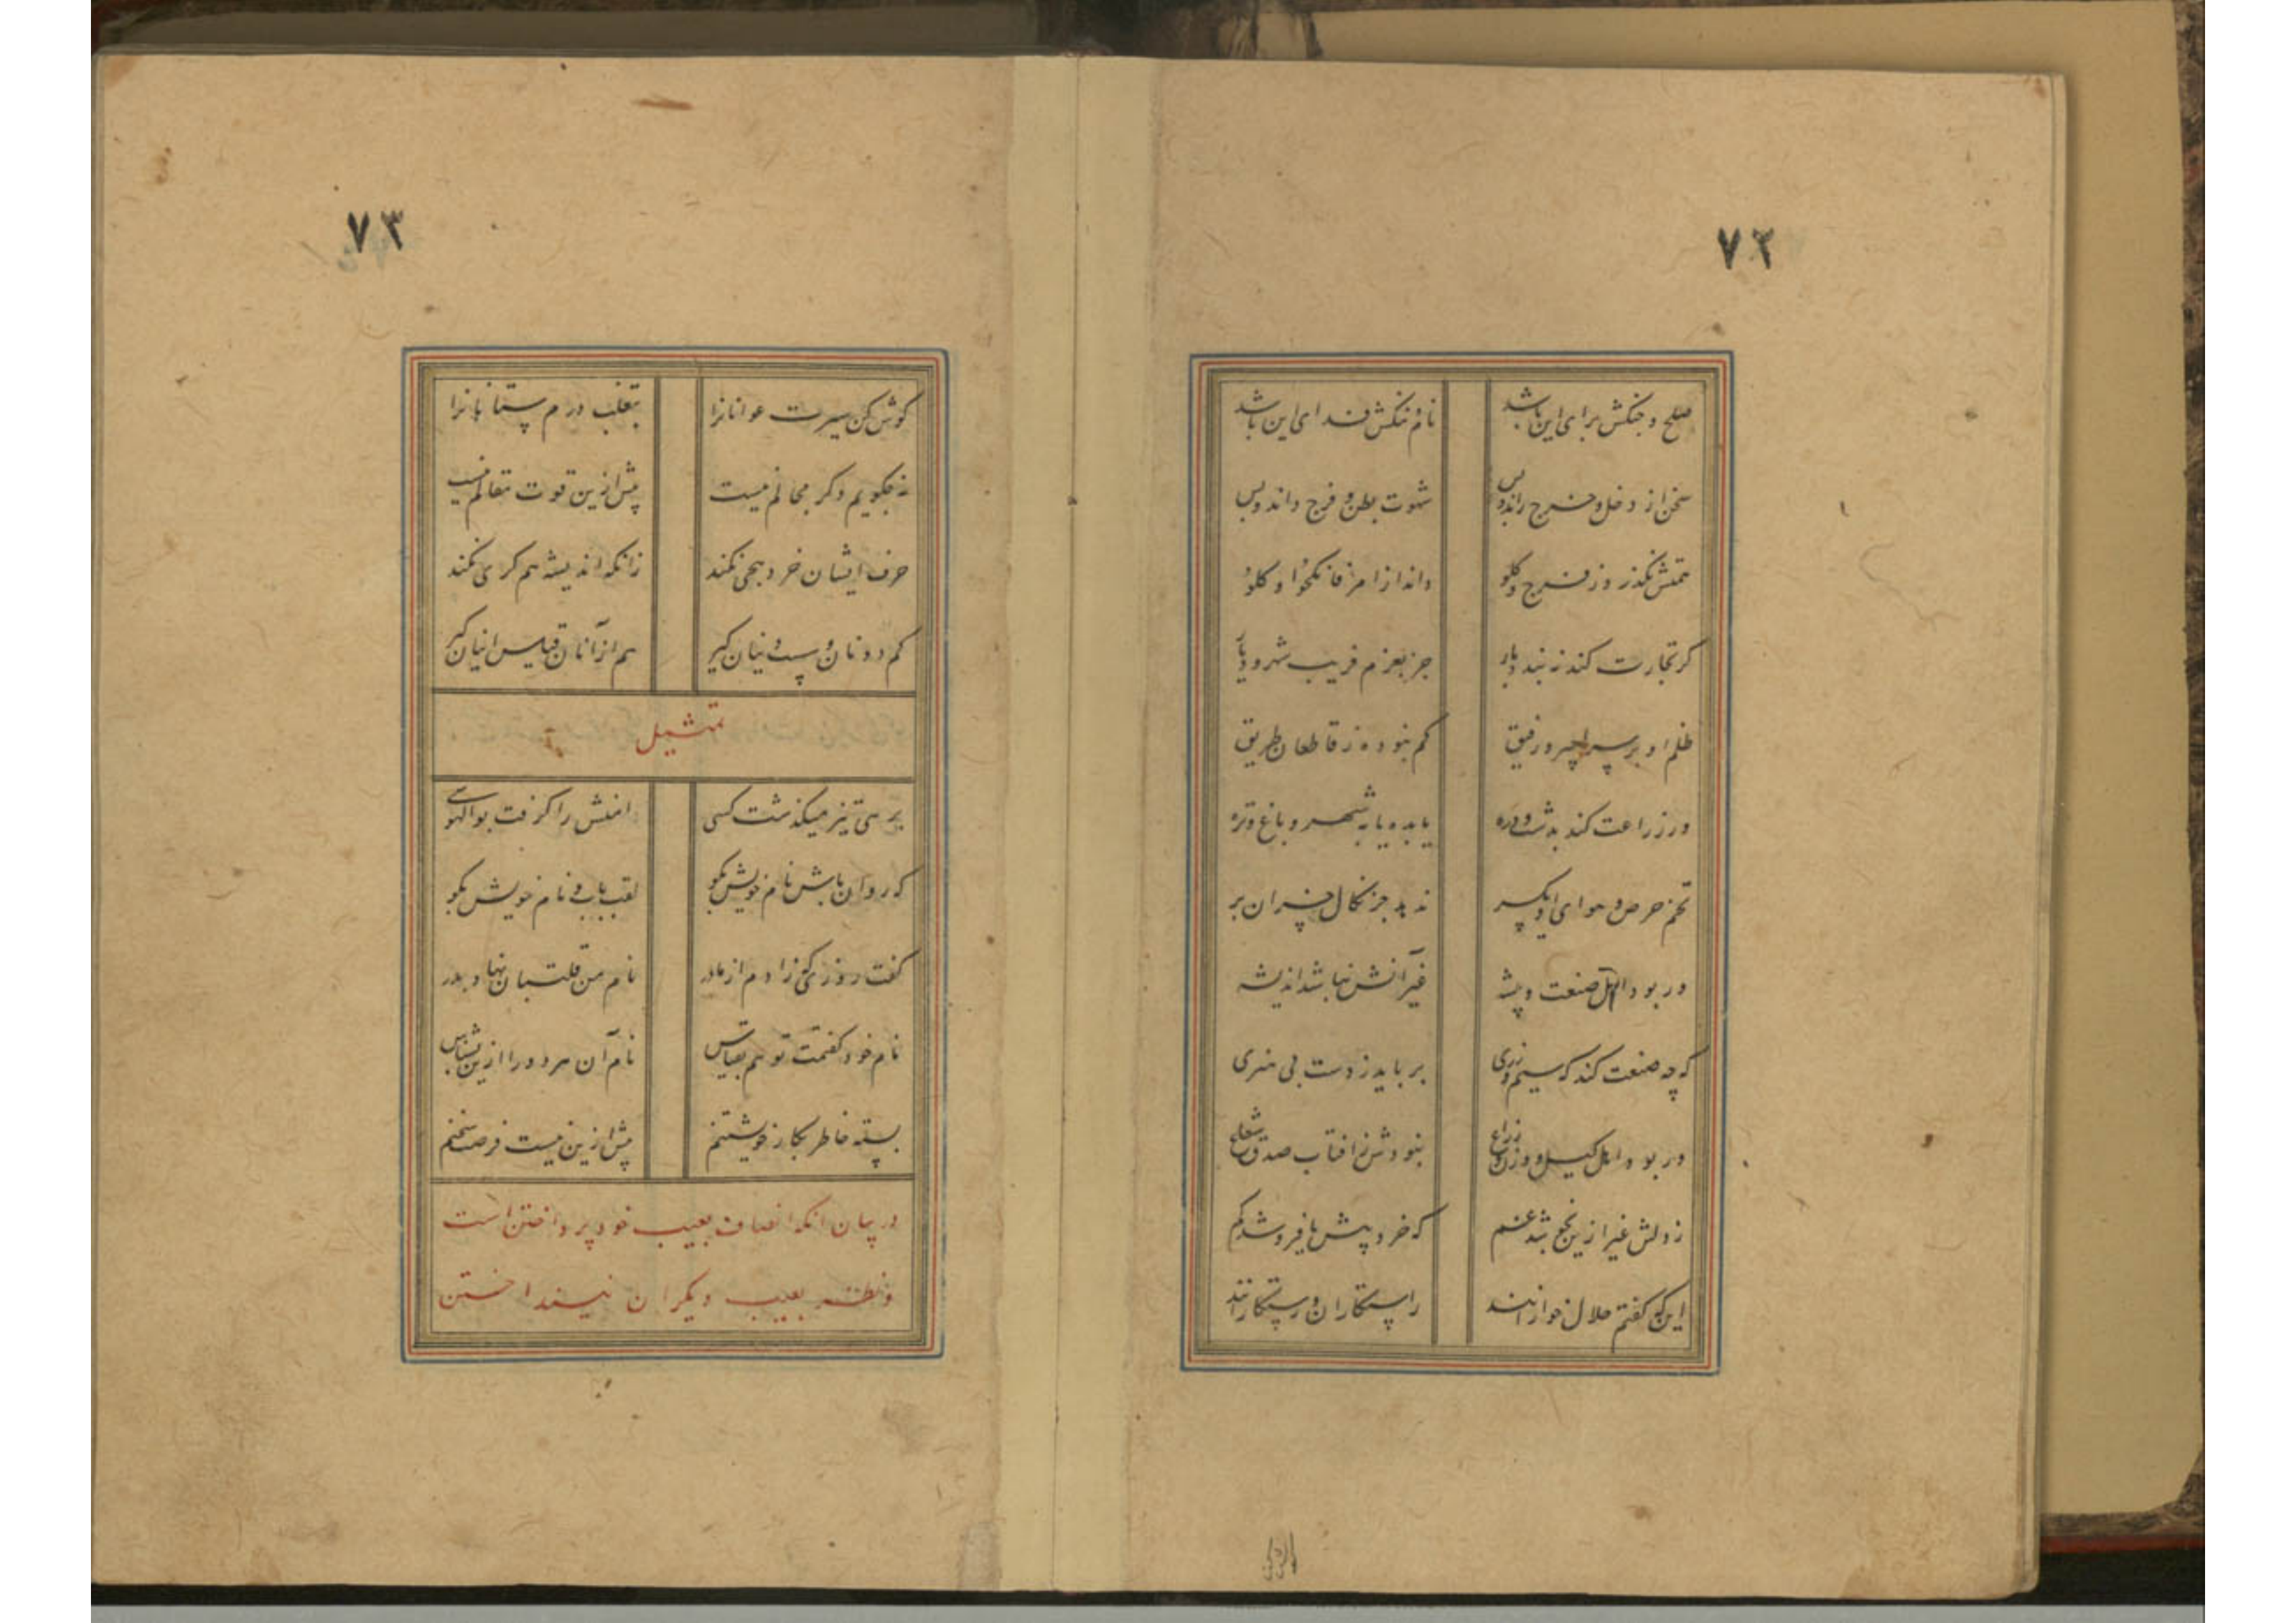 ۷۲
صلح و جنکش برای این باشد نام و ننکش فدای این باشد
سخن از دخل و خرج راند و بس شهوت بطن و فرج داند و بس
همتش نکذرد ز فرج و کلو داند از امر فانکحوا و کلوا
کر تجارت کند نه بندد بار جز بعزم فریب شهر و دیار
ظلم او بر سر اجیر و رفیق کم نبوده ز قاطعان طریق
ور زراعت کند بدشت و دره یا بده یا به شهر و باغ و تره
تخم حرص و هوای او یکسر ندهد جز نکال خسران بر
ور بود اهل صنعت و پیشه غیر آنش نباشد اندیشه
که چه صنعت کند که سیم و زری برباید ز دست بی هنری
ور بود اهل کیل و وزن و ذراع نبودش ز افتاب صدق شعاع
ز دلش غیر ازین نجوشد غم که خرد بیش یا فروشد کم
این که کفتم حلال خوارانند راستکاران و رستکارانند
۷۳
کوش کن سیرت عوانانرا بتغلب درم ستانانرا
نه بکویم دکر مجالم نیست بیش ازین قوت مقالم نیست
حرف ایشان خرد بهجی نکند زانکه اندیشه هم کری نکند
کم دونان و سست دینان کیر هم از آنان قیاس اینان کیر
تمثیل
بر رهی تیز میکذشت کسی دامنش را کرفت بوالهوسی
که روان باش نام خویش بکو لقب باب و نام خویش بکو
کفت روزی که زادم از مادر نام من قلتبان نهاد پدر
نام خود کفتمت تو هم بقیاس نام آن هر دو را ازین بشناس
بسته خاطر بکار خویشتنم بیش ازین نیست فرصت سخنم
در بیان انکه انصاف بعیب خود پرداختن است
و نظر بعیب دیکران نینداختن